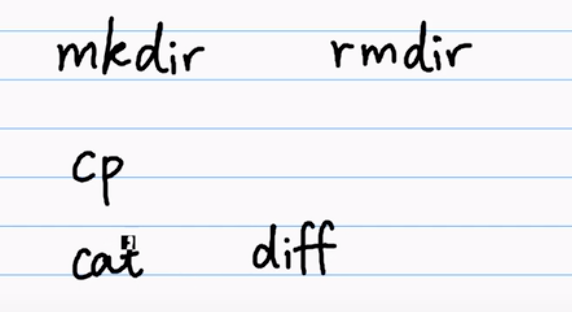 mkdir rmdir
cp
cat diff